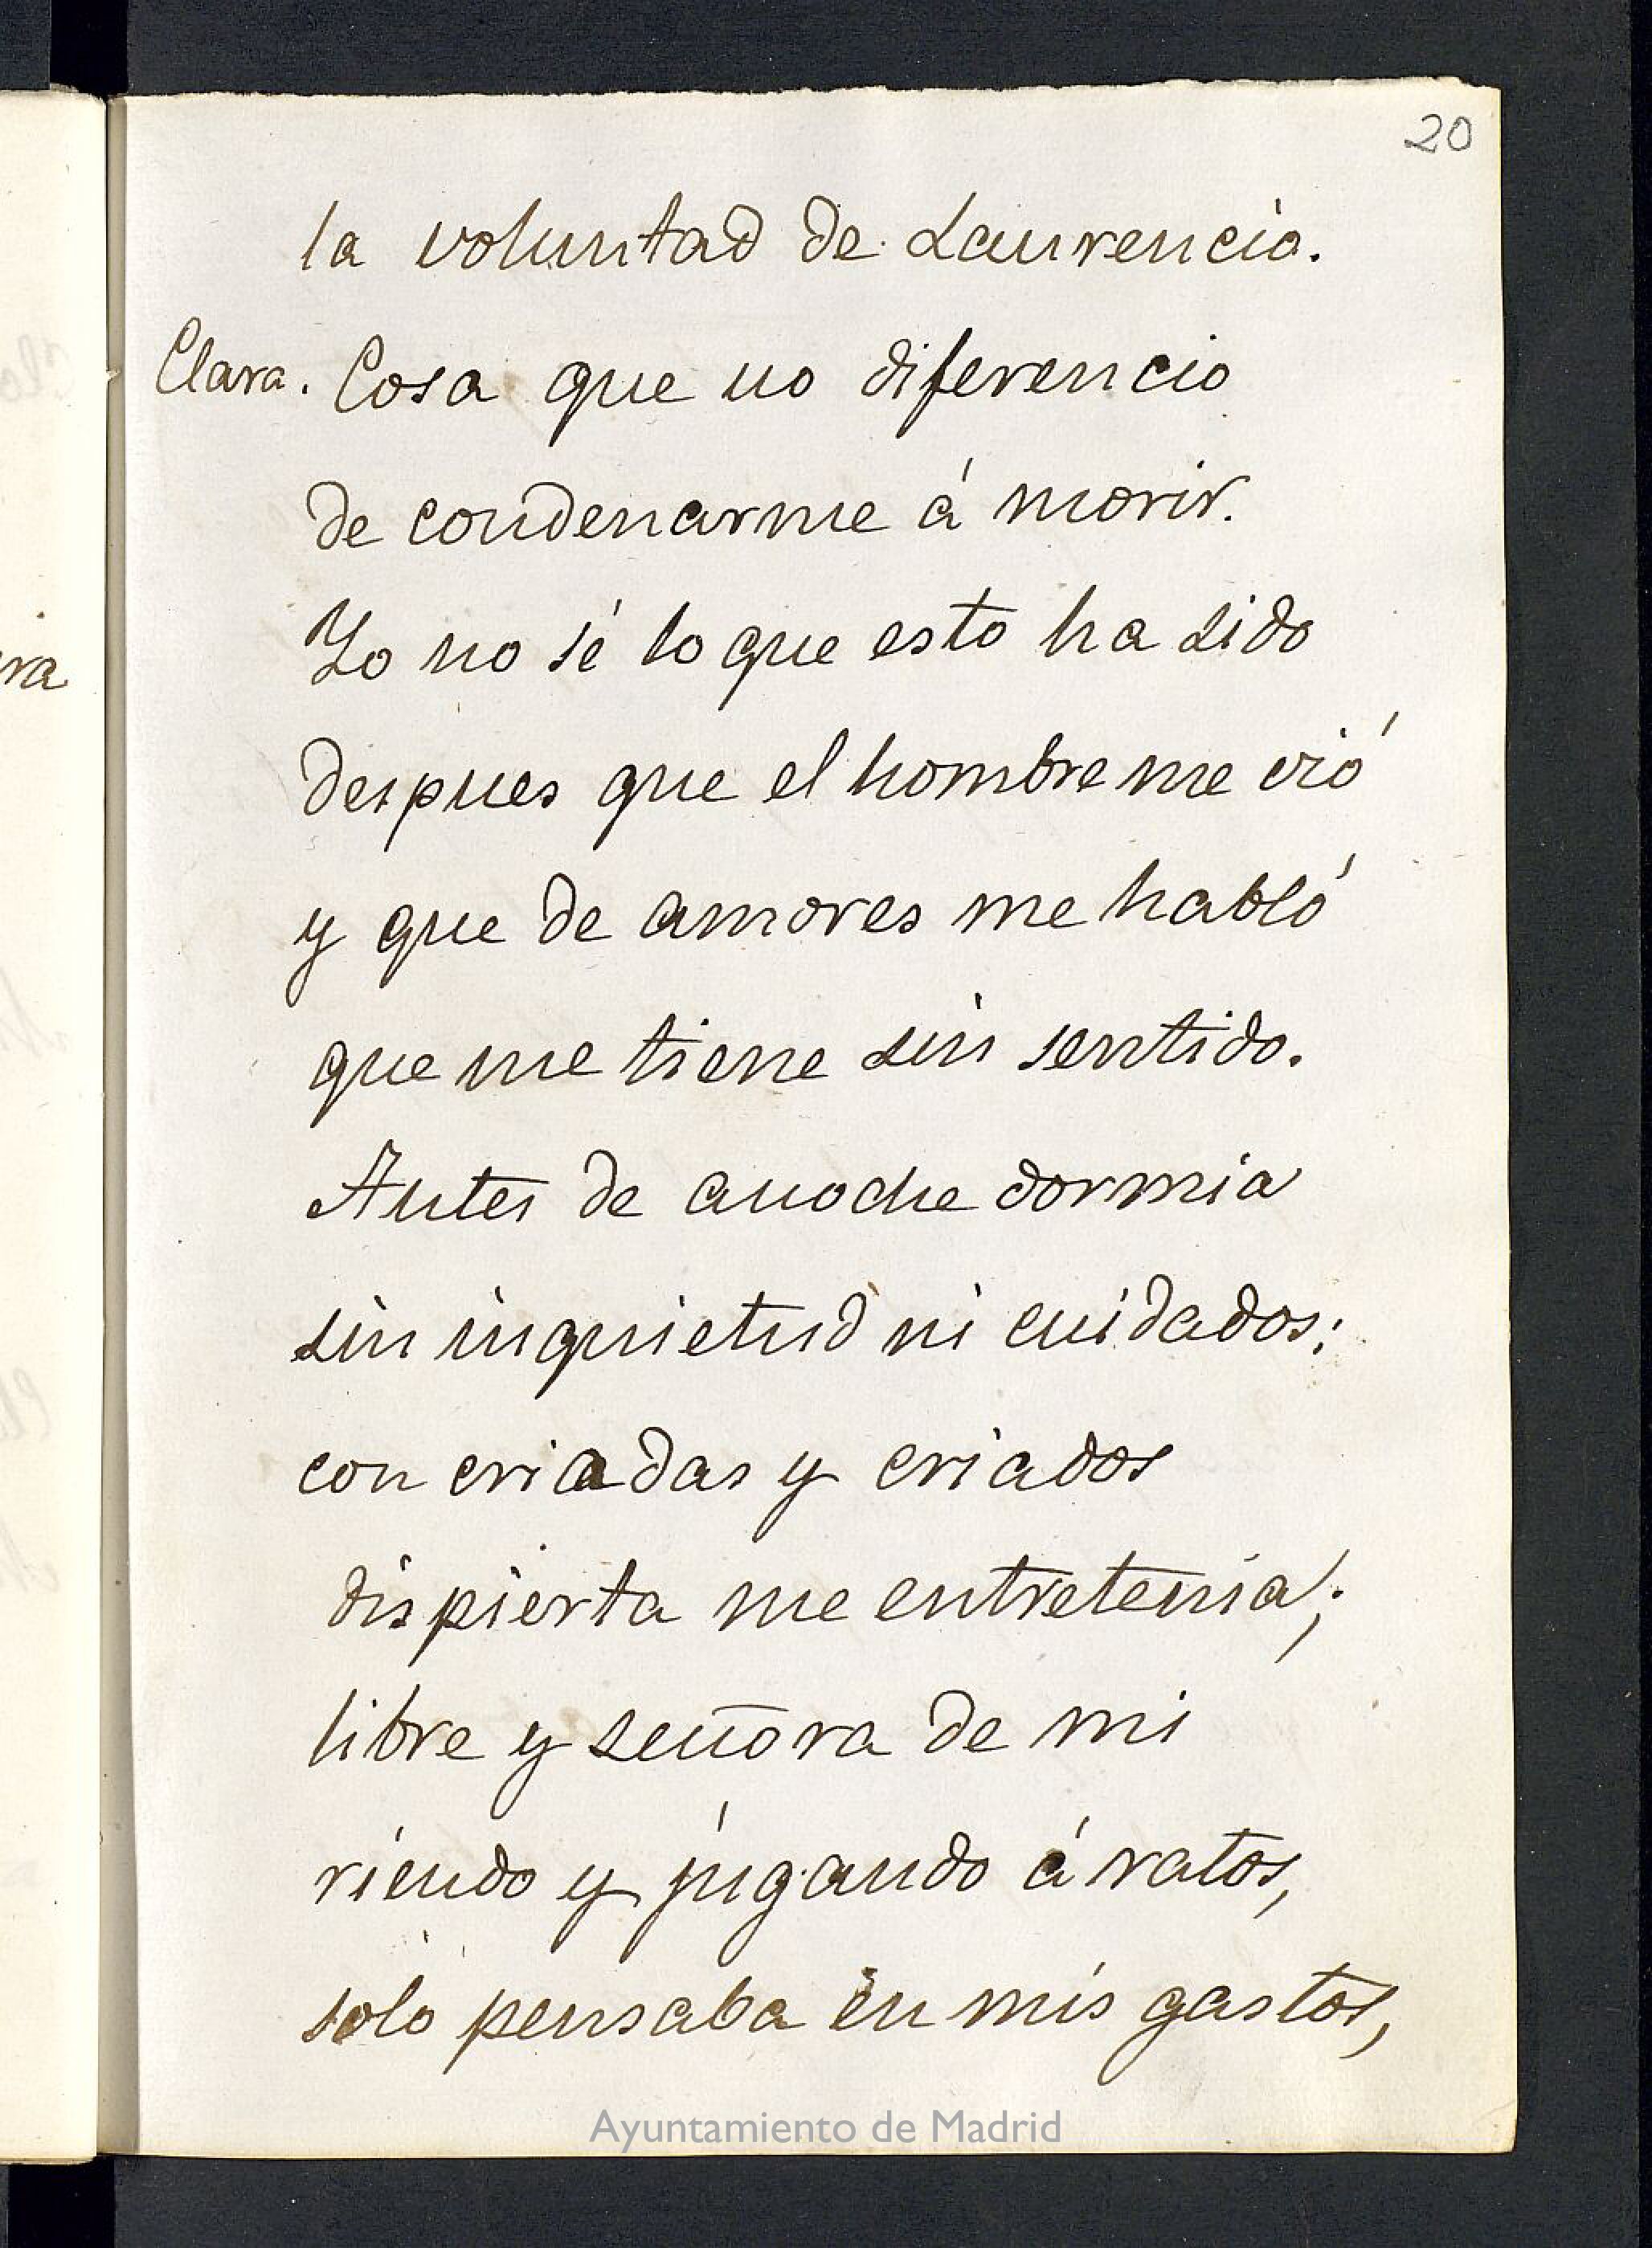 20
la voluntad de Laurencio.
Clara. Cosa que no diferencio
de condenarme á morir.
Yo no sé lo que esto ha sido
despues que el hombre me vió
y que de amores me habló
que me tiene sin sentido.
Antes de anoche dormia
sin inquietud ni cuidados;
con criadas y criados
dispierta me entretenia;
libre y señora de mi
riendo y jugando á ratos,
solo pensaba en mis gastos,
ra
Ayuntamiento de Madrid